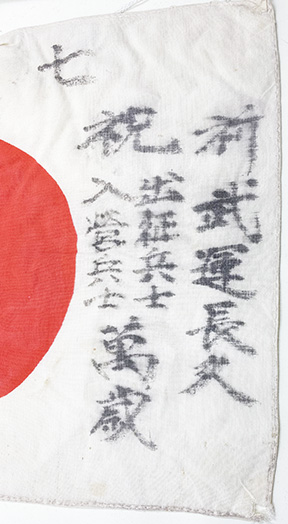 祈武運長久
祝出征兵士入營兵士萬歲
七